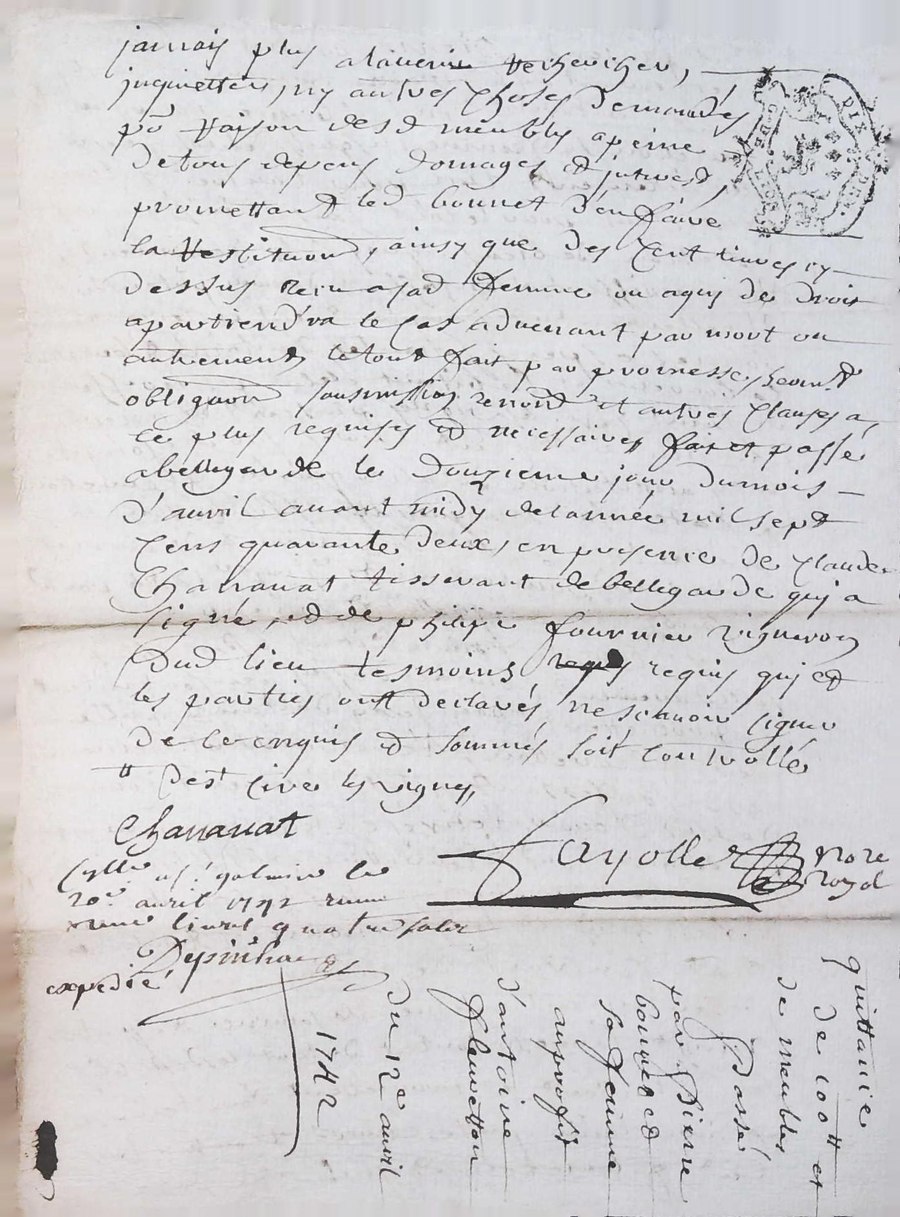 jamais plus a lavenir rechercher,
inquietter, ny autres choses demandés
po raison desd meubles a peine
de tous depens domages et interest,
promettant led bonnet d'en faire
la restitution, ainsy que des cent livres cy
dessus receu a sad femme ou a qui de droit
apartiendra le cas advenant par mort ou
autrement, le tout fait par promesse, serment
obligaon soumission, renonc et autres clauses a
ce plus requises et necessaires fait et passé
a bellegarde le douzieme jour du mois
d'avril avant midy de l'année mil sept
cens quarante deux, en presence de Claude
Chananat tisserant de bellegarde qui a
signé, et de philipe fournier vigneron
dud lieu tesmoins requis qui et
les parties ont declarés ne scavoir signer
de ce enquis et sommés soit controllé
Chananat
Fayolle nore
royal
avril 1742
livres quatre sols
expedié
quittance
de 100 ₶ et
de meubles
Passé
par Pierre
bonnet et
sa femme
au profit
d'antoine
fleuretton
du 12e avril
1742
DIX DEN.